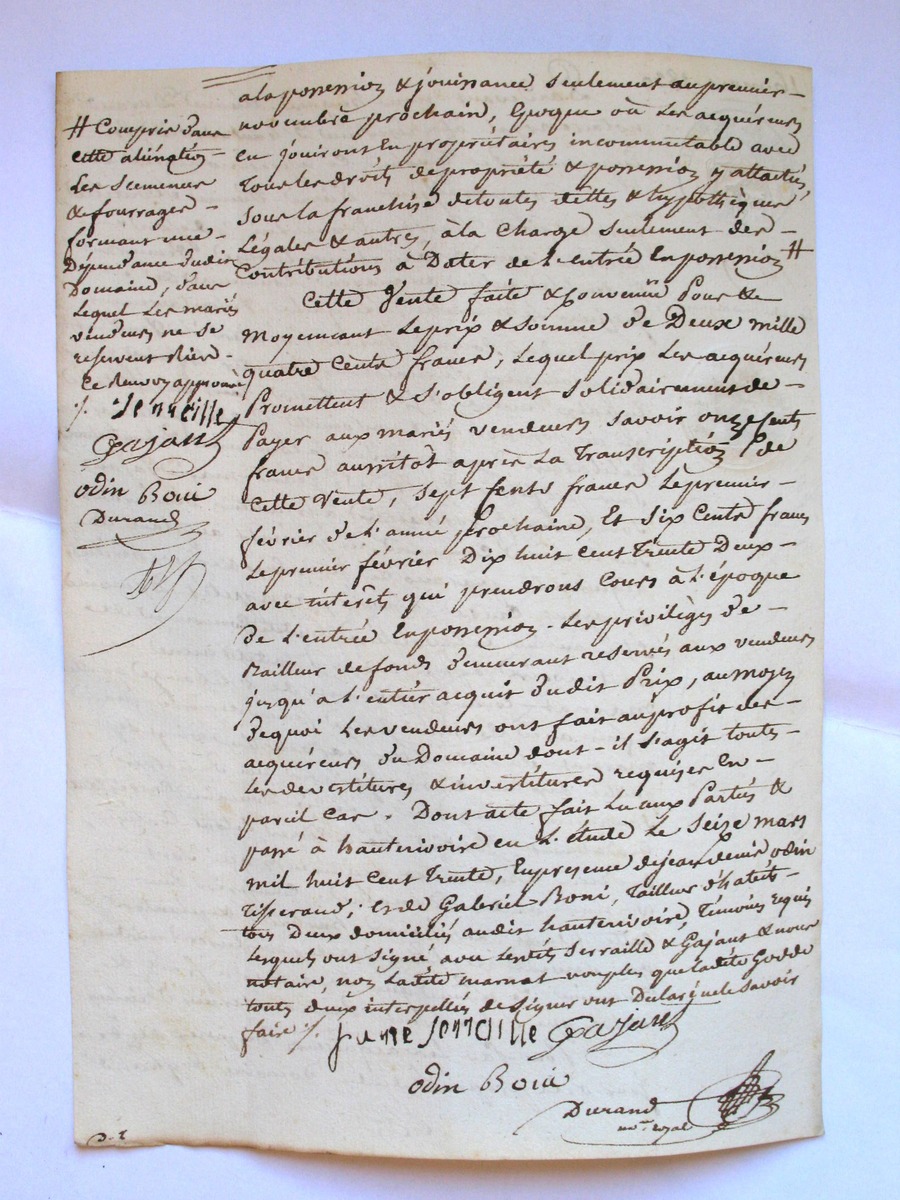 a la possession & jouissance seulement au premier
novembre prochain, Epoque où Les acquéreurs
en jouiront En propriétaires incommutable avec
Tous les droits de propriété & possession y attachés,
sous la franchise de toutes dettes & hypothèques
Légales & autres, à la Charge seulement des
Contributions à Dater de L'entrée En possession #
Cette Vente faite & convenue Pour &
Moyennant Le prix & somme de Deux mille
quatre Cents francs, Lequel prix Les acquéreurs
Promettent & s'obligent solidairement de
Payer aux mariés vendeurs savoir onze Cents
francs aussitôt après La Transcription de
Cette Vente, sept Cents francs Le premier
février de L'année prochaine, Et six Cents francs
Le premier février Dix huit Cent Trente Deux
avec intérêts qui prendrons Cours à L'époque
de L'entrée En possession. Les privilèges de
Bailleur de fonds demeurant reservés aux vendeurs
jusqu'a L'entier acquit dudit Prix, au moyen
de quoi Les vendeurs ont fait au profit des
acquéreurs du Domaine dont il s'agit toutes
Les devestitures & investitures requises En
pareil Cas. Dont acte fait Lu aux Parties &
passé à hauterivoire en L'étude Le seize mars
mil huit Cent Trente, En presence de jean denis odin
Tisserand, et de Gabriel Boni, Tailleur d'habits
tous Deux domiciliés audit hauterivoire, Témoins requis
Lesquels ont signé avec Lesdits Serraille & Gajant & nous
notaire, non Ladite marnat non plus que ladite Godde
toutes deux interpellées de signer ont Declaré ne le savoir
faire ./.
Serraille Gajant
odin Boni
Durand
not. royal
# Compris dans
cette aliénation
Les Scemences
& fourrages
formant une
Dépendance dudit
Domaine, dans
Lequel Les mariés
vendeurs ne se
reservent Rien
Ce Renvoy approuvé
./. Serraille
Gajant
odin Boni
Durand